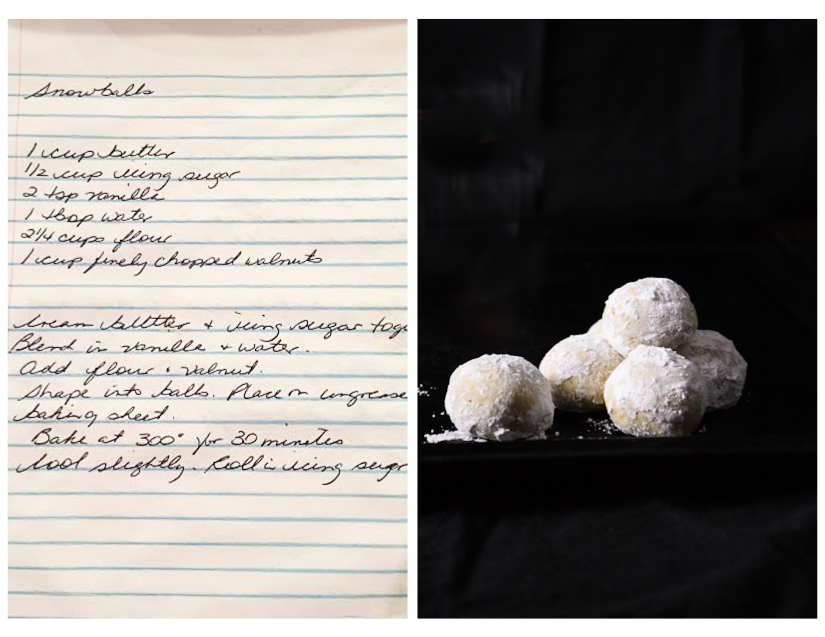 Snowballs
1 cup butter
1/2 cup icing sugar
2 tsp vanilla
1 tbsp water
2 1/4 cups flour
1 cup finely chopped walnuts
Cream butter + icing sugar toge
Blend in vanilla + water.
Add flour + walnut.
Shape into balls. Place on ungrease
baking sheet.
Bake at 300° for 30 minutes
Cool slightly. Roll in icing sugar